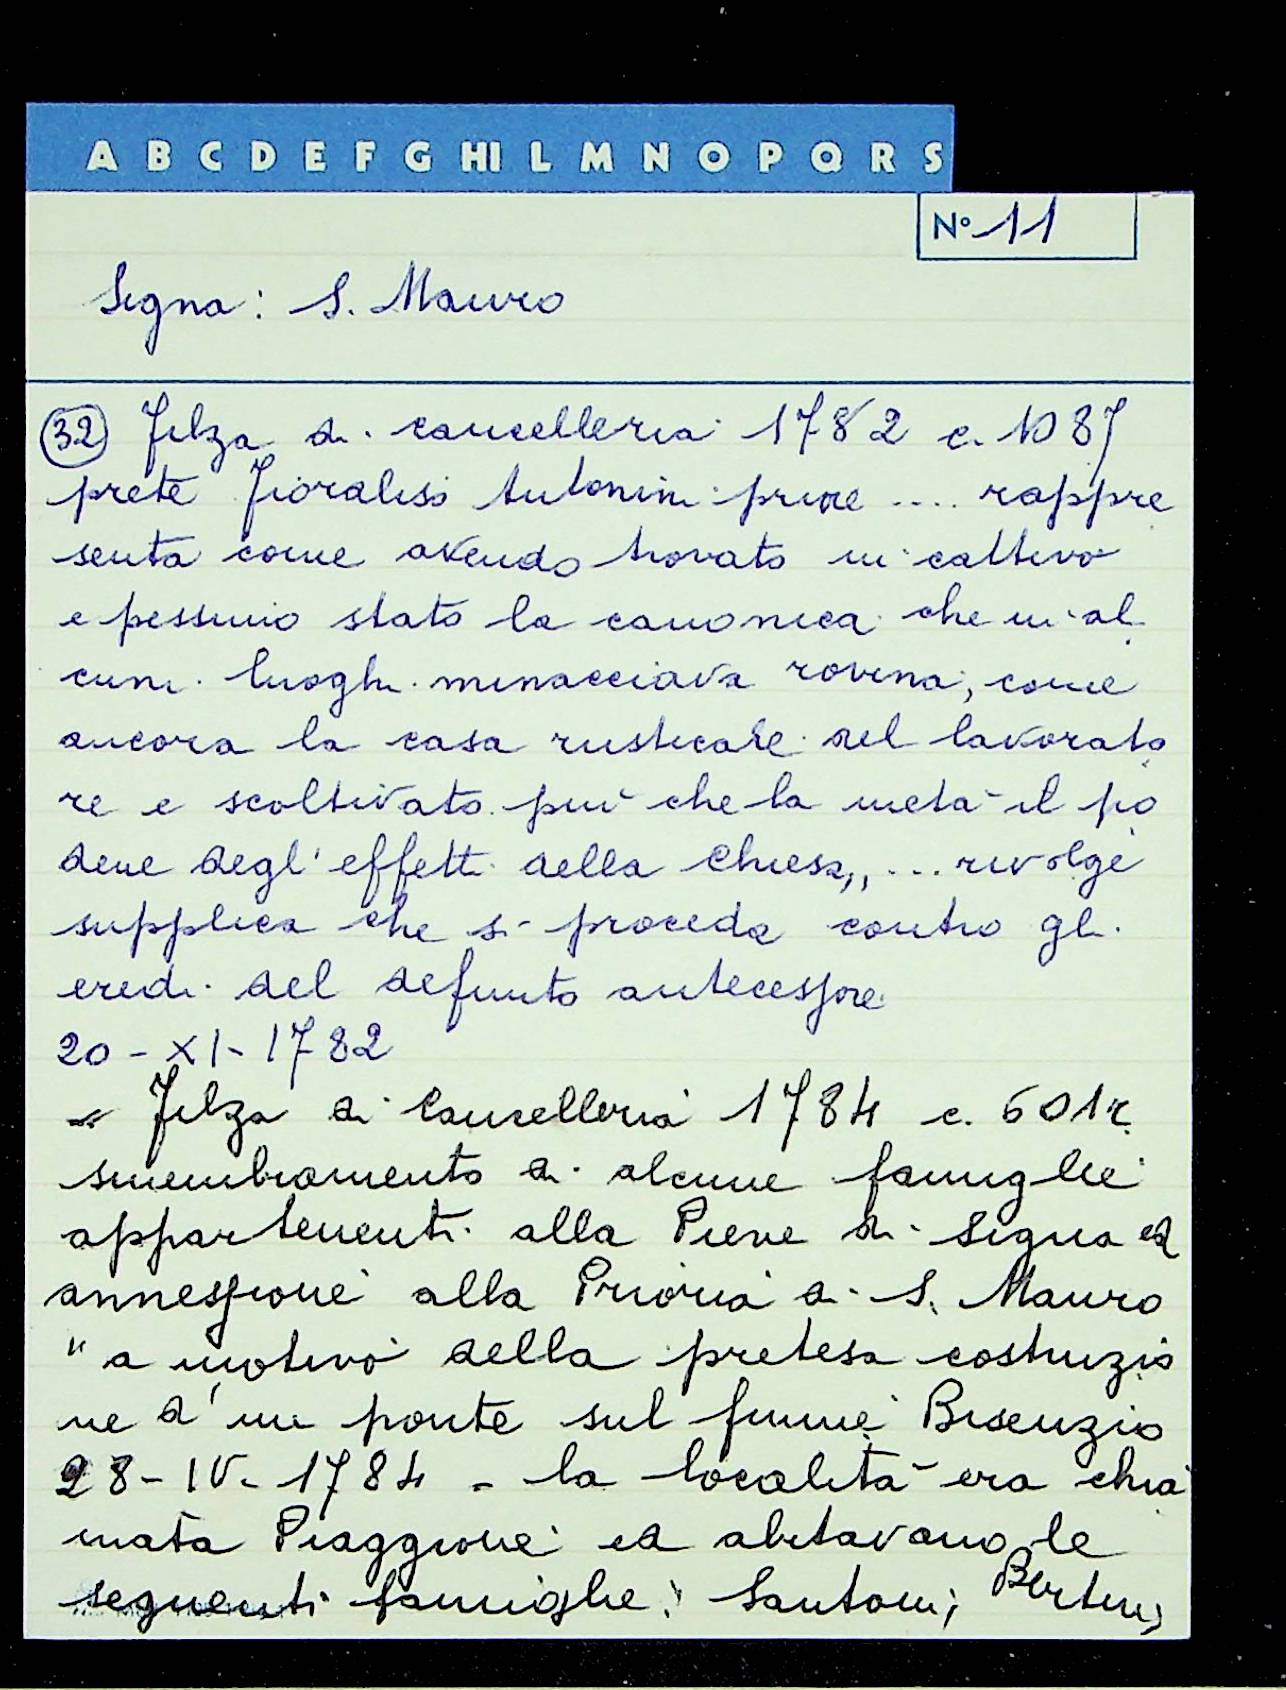 A B C D E F G HI L M N O P Q R S
N° 11
Signa: S. Mauro
(32) Filza di cancelleria 1782 c. 1087
prete Fioraliso Antonini priore .... rappre
senta come avendo trovato in cattivo
e pessimo stato la canonica che in al
cuni luoghi minacciava rovina, come
ancora la casa rusticale del lavorato
re e scoltivato più che la metà il po
dere degl'effetti della Chiesa,, ... rivolge
supplica che si proceda contro gli
eredi del defunto antecessore
20-XI-1782
" Filza di Cancelleria 1784 c. 601r.
smembramento di alcune famiglie
appartenenti alla Pieve di Signa ed
annessione alla Prioria di S. Mauro
"a motivo della pretesa costruzio
ne d'un ponte sul fiume Bisenzio
28-IV-1784 - la località era chia
mata Piaggione ed abitavano le
seguenti famiglie: Santoni, Bertini,